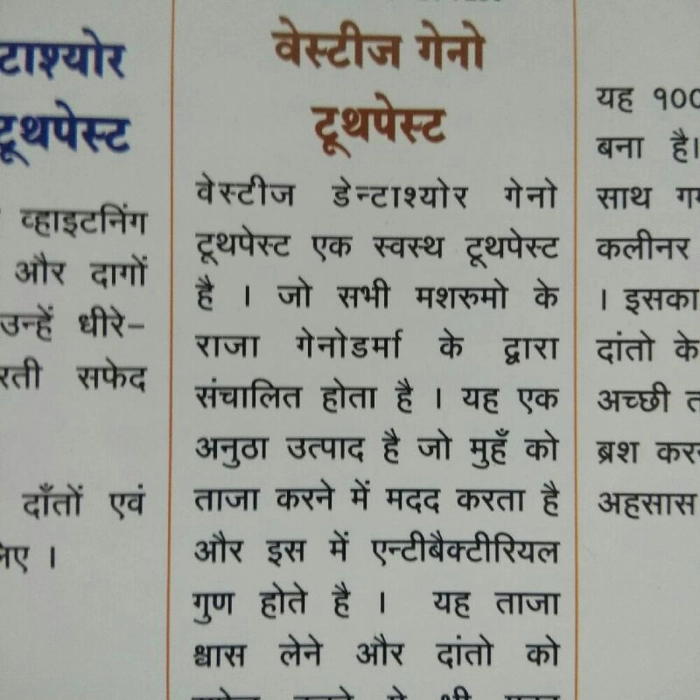 टाश्योर
टूथपेस्ट
व्हाइटनिंग
और दागों
उन्हें धीरे-
रती सफेद
दाँतों एवं
वेस्टीज गेनो
टूथपेस्ट
वेस्टीज डेन्टाश्योर गेनो
टूथपेस्ट एक स्वस्थ टूथपेस्ट
है । जो सभी मशरुमो के
राजा गेनोडर्मा के द्वारा
संचालित होता है । यह एक
अनुठा उत्पाद है जो मुहँ को
ताजा करने में मदद करता है
और इस में एन्टीबैक्टीरियल
गुण होते है । यह ताजा
श्वास लेने और दांतो को
यह १००
बना है।
साथ
कलीनर
। इसका
दांतो के
अच्छी
ब्रश
अहसास